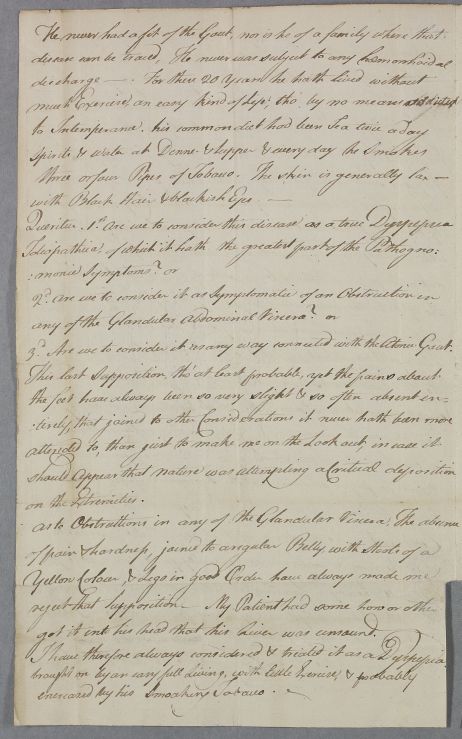 He never had a fit of the Gout, nor is he of a family where that
disease can be traced, He never was subject to any hæmorrhoidal
discharge — . For these 20 Years he hath lived without
much Exercise, an easy kind of Life; tho' by no means addicted
to Intemperance, his common diet had been Tea twice a day
Spirits & Water at Dinner & Supper & every day he Smokes
three or four Pipes of Tobacco. The Skin is generally lax —
with Black Hair & blackish Eyes —
Quæritur. 1st. Are we to consider this disease as a true Dyspepsia
Idiopathica, of which it hath the greatest part of the Pathogno:
:monic Symptoms? or
2d. Are we to consider it as Symptomatic of an Obstruction in
any of the Glandular Abdominal Viscera? or
3d. Are we to consider it as any way connected with the Atonic Gout.
This last Supposition, tho' at least probable, yet the pains about
the feet have always been so very slight & so often absent en-
:tirely, that joined to other Considerations it never hath been more
attended to, than just to make me on the Look out, in case it
should appear that nature was attempting a Critical deposition
on the Extremities.
As to Obstructions in any of the Glandular Viscera, The absence
of pain & hardness, joined to a regular Belly with Stools of a
Yellow Colour, & Legs in good Order have always made me
reject that Supposition — My Patient had some how or other
got it into his head that his Liver was unsound.
I have therefore always considered & treated it as a Dyspepsia
brought on by an easy full Living, with little Exercise, & probably
encreased by his Smoaking Tobacco.